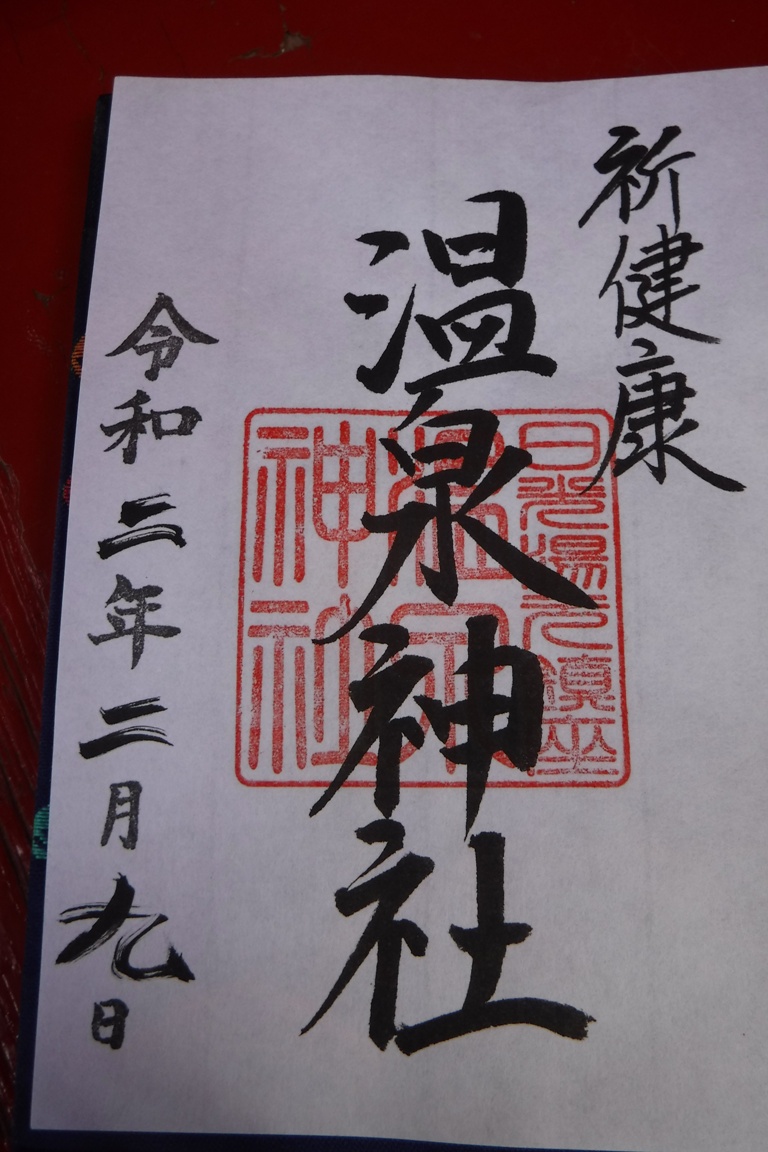 祈健康
温泉神社
日光湯元鎮座
温泉
神社
令和二年二月九日